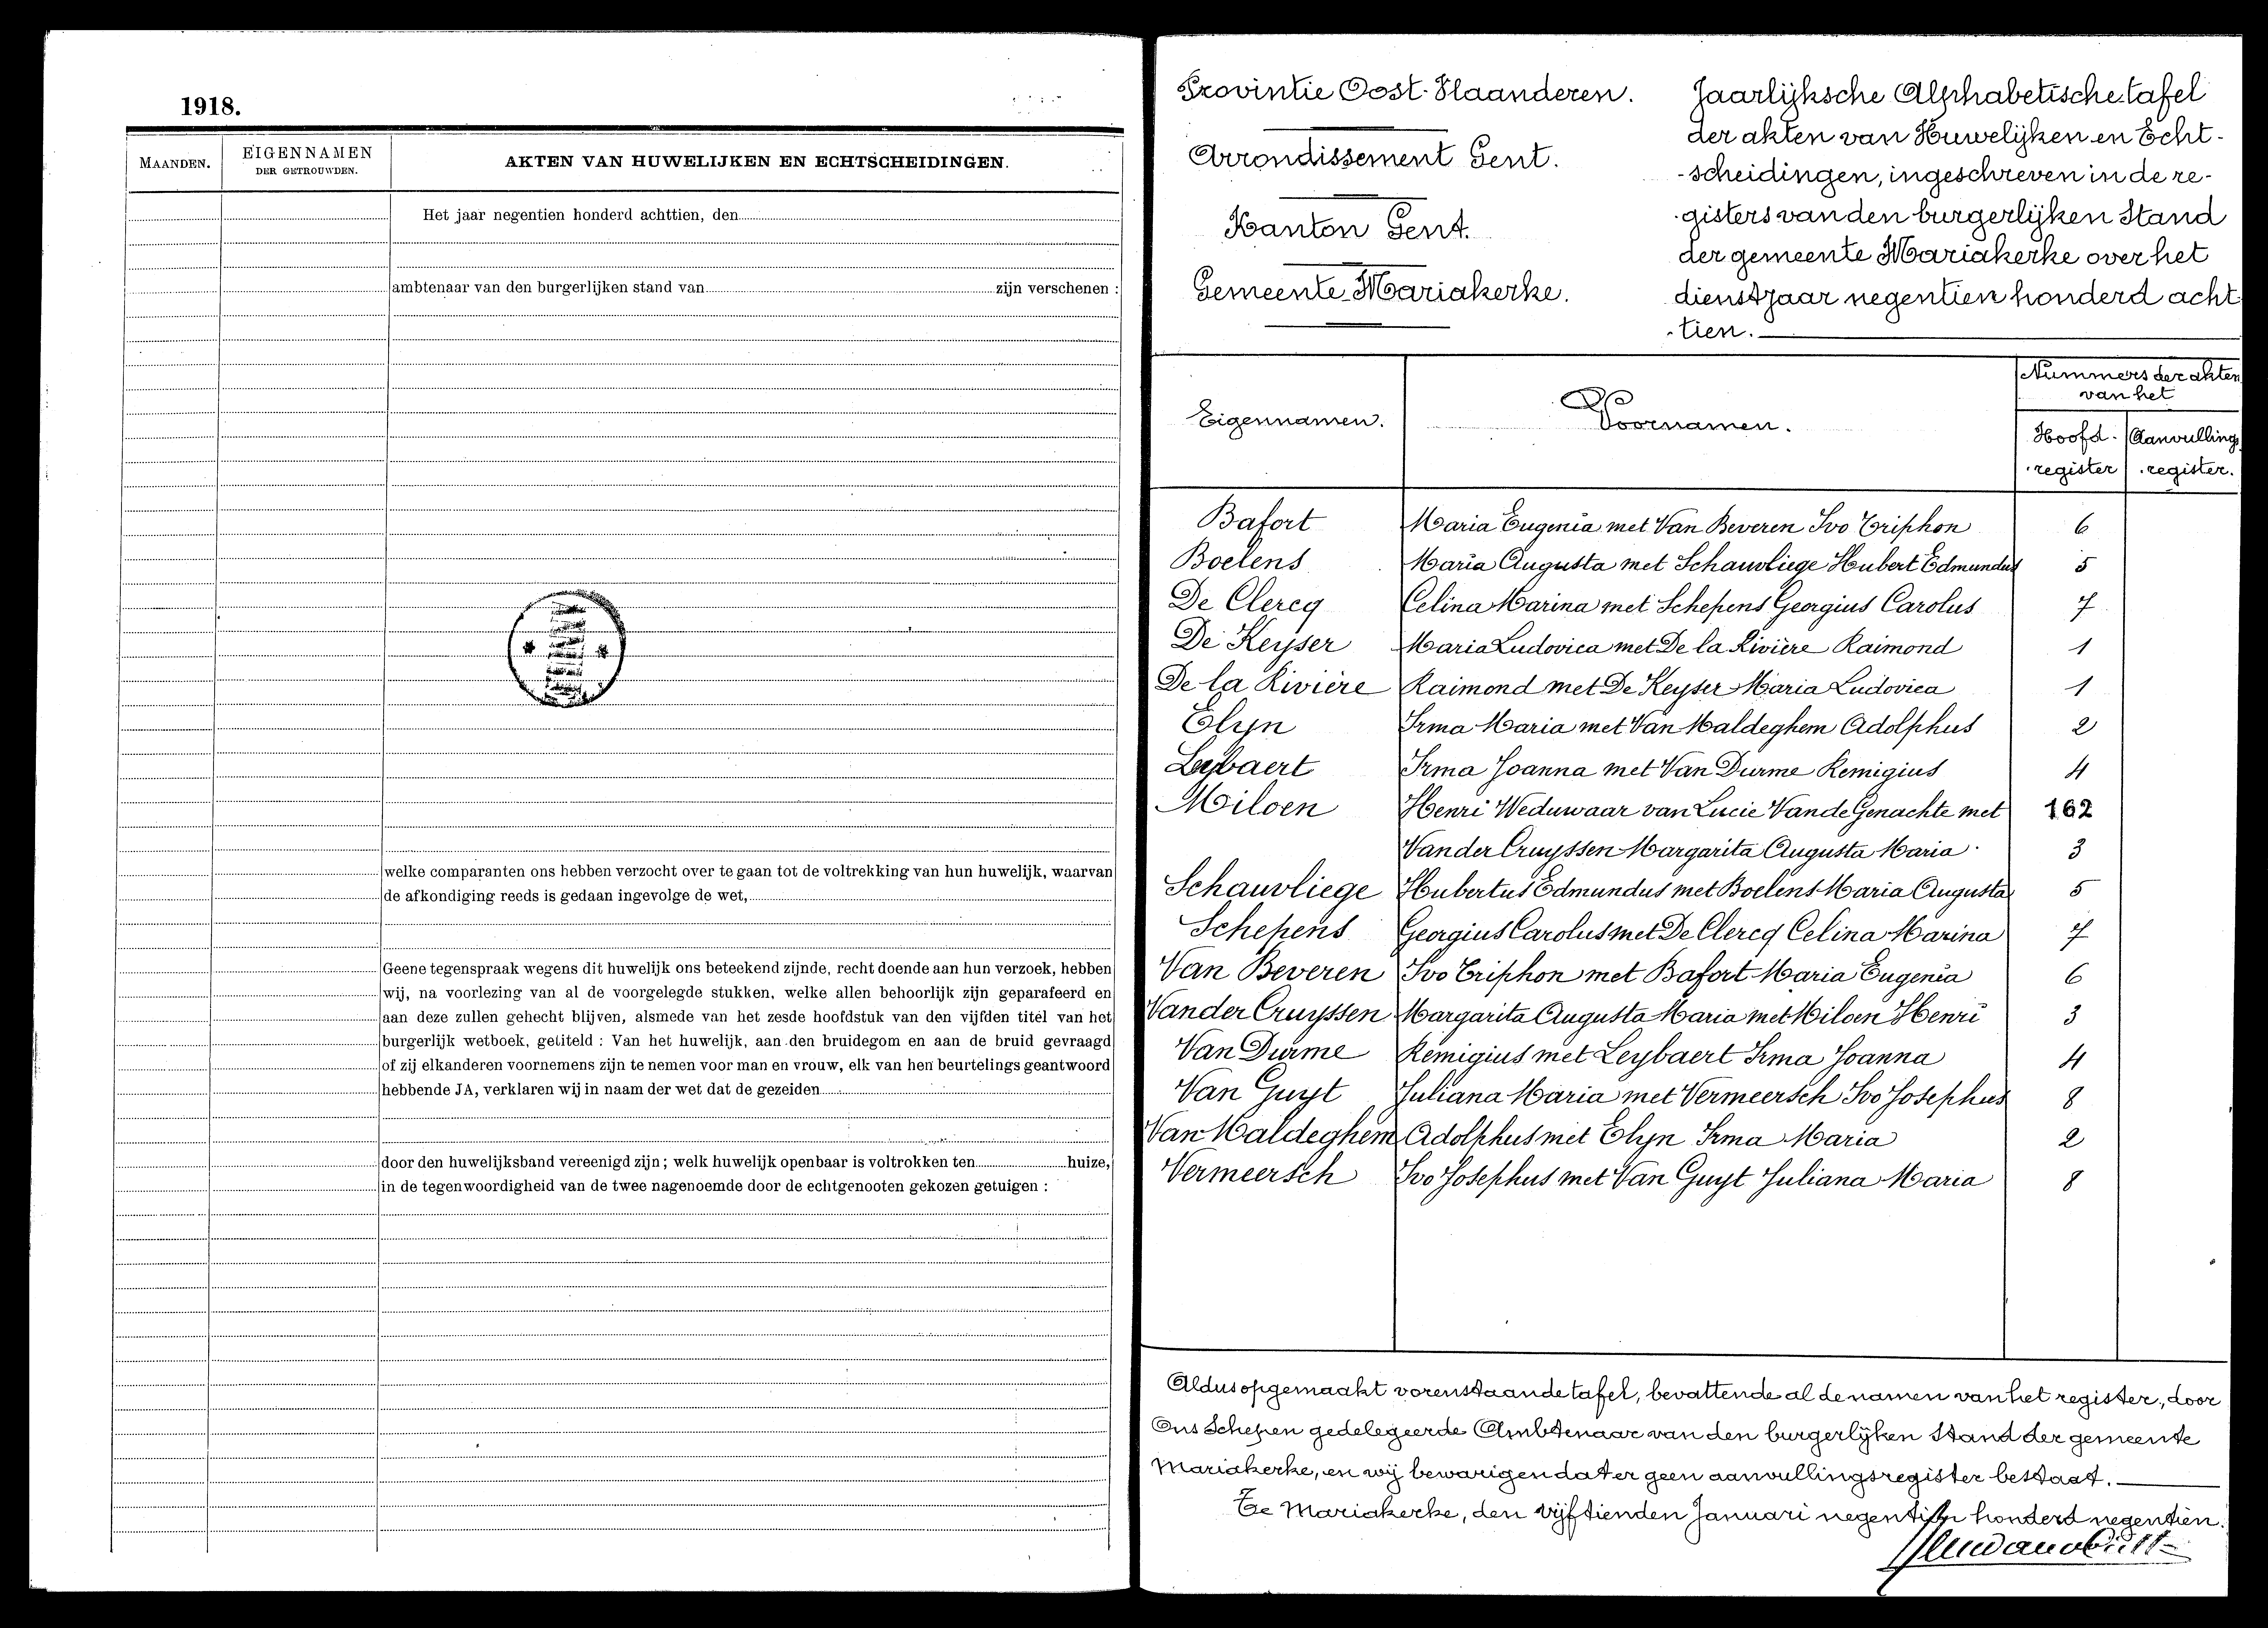 1918.
MAANDEN.
EIGENNAMEN
DER GETROUWDEN.
AKTEN VAN HUWELIJKEN EN ECHTSCHEIDINGEN.
Het jaar negentien honderd achttien, den
ambtenaar van den burgerlijken stand van zijn verschenen :
welke comparanten ons hebben verzocht over te gaan tot de voltrekking van hun huwelijk, waarvan
de afkondiging reeds is gedaan ingevolge de wet,
Geene tegenspraak wegens dit huwelijk ons beteekend zijnde, recht doende aan hun verzoek, hebben
wij, na voorlezing van al de voorgelegde stukken, welke allen behoorlijk zijn geparafeerd en
aan deze zullen gehecht blijven, alsmede van het zesde hoofdstuk van den vijfden titel van het
burgerlijk wetboek, getiteld : Van het huwelijk, aan den bruidegom en aan de bruid gevraagd
of zij elkanderen voornemens zijn te nemen voor man en vrouw, elk van hen beurtelings geantwoord
hebbende JA, verklaren wij in naam der wet dat de gezeiden
door den huwelijksband vereenigd zijn ; welk huwelijk openbaar is voltrokken ten huize,
in de tegenwoordigheid van de twee nagenoemde door de echtgenooten gekozen getuigen :
Provintie Oost-Vlaanderen.
Arrondissement Gent.
Kanton Gent.
Gemeente Mariakerke.
Jaarlijksche Alphabetische tafel
der akten van Huwelijken en Echt-
-scheidingen, ingeschreven in de re-
-gisters van den burgerlijken Stand
der gemeente Mariakerke over het
dienstjaar negentien honderd acht-
-tien.
Eigennamen. Voornamen. Nummers der akten
van het
Hoofd- Aanvullings
-register -register.
Bafort Maria Eugenia met Van Beveren Ivo Triphon 6
Boelens Maria Augusta met Schauvliege Hubert Edmundus 5
De Clercq Celina Marina met Schepens Georgius Carolus 7
De Keyser Maria Ludovica met De la Rivière Raimond 1
De la Rivière Raimond met De Keyser Maria Ludovica 1
Elyn Irma Maria met Van Maldeghem Adolphus 2
Leybaert Irma Joanna met Van Durme Remigius 4
Miloen Henri Weduwaar van Lucie Vande Genachte met 162
Vander Cruyssen Margarita Augusta Maria 3
Schauvliege Hubertus Edmundus met Boelens Maria Augusta 5
Schepens Georgius Carolus met De Clercq Celina Marina 7
Van Beveren Ivo Triphon met Bafort Maria Eugenia 6
Vander Cruyssen Margarita Augusta Maria met Miloen Henri 3
Van Durme Remigius met Leybaert Irma Joanna 4
Van Guyt Juliana Maria met Vermeersch Ivo Josephus 8
Van Maldeghem Adolphus met Elyn Irma Maria 2
Vermeersch Ivo Josephus met Van Guyt Juliana Maria 8
Aldus opgemaakt vorenstaande tafel, bevattende al de namen van het register, door
Ons Schepen gedelegeerde Ambtenaar van den burgerlijken Stand der gemeente
Mariakerke, en wij bewarigen dat er geen aanvullingsregister bestaat.
Te Mariakerke, den vijftienden Januari negentien honderd negentien.